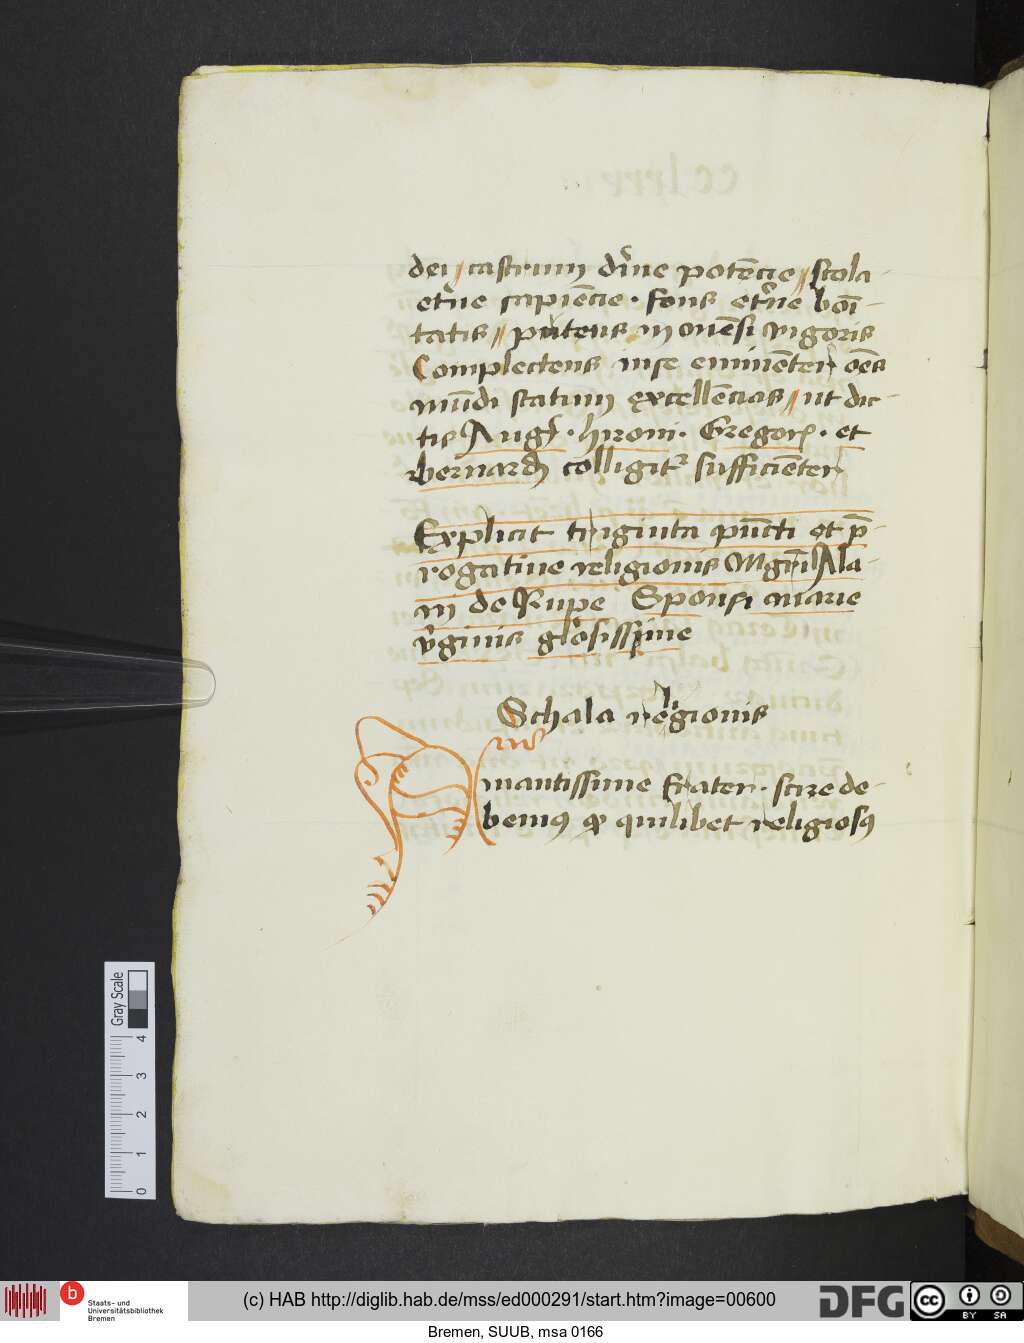 dei // castrum diuīe potēcie // scola
et'ne sapiēcie · fons et'ne boī-
tatis // puteus in mēsi vigoris
Complectens in se eminēter oēs
mūdi statum excellēcias // ut dic-
tis Aug · hironi · Gregor · et
bernardi colligit' sufficiēter
Explicit triginta pūcti et p̄-
rogatiue religionis Mgrī Ala-
ni de Rupe Sponsi marie
v'ginis gl'osissime
Schala religionis
mantissime frater · scire de-
bemus quilibet religiosus
Gray Scale
0 1 2 3 4
b
Staats- und
Universitätsbibliothek
Bremen
(c) HAB http://diglib.hab.de/mss/ed000291/start.htm?image=00600
DFG
cc BY SA
Bremen, SUUB, msa 0166